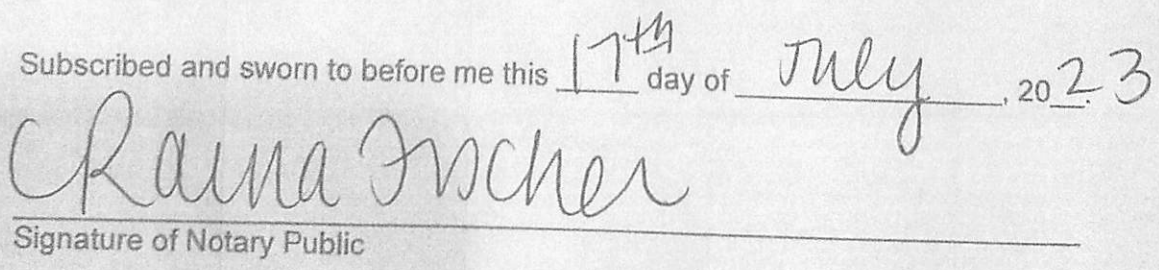 Subscribed and sworn to before me this 17th day of July, 2023
CRaina Fischer
Signature of Notary Public